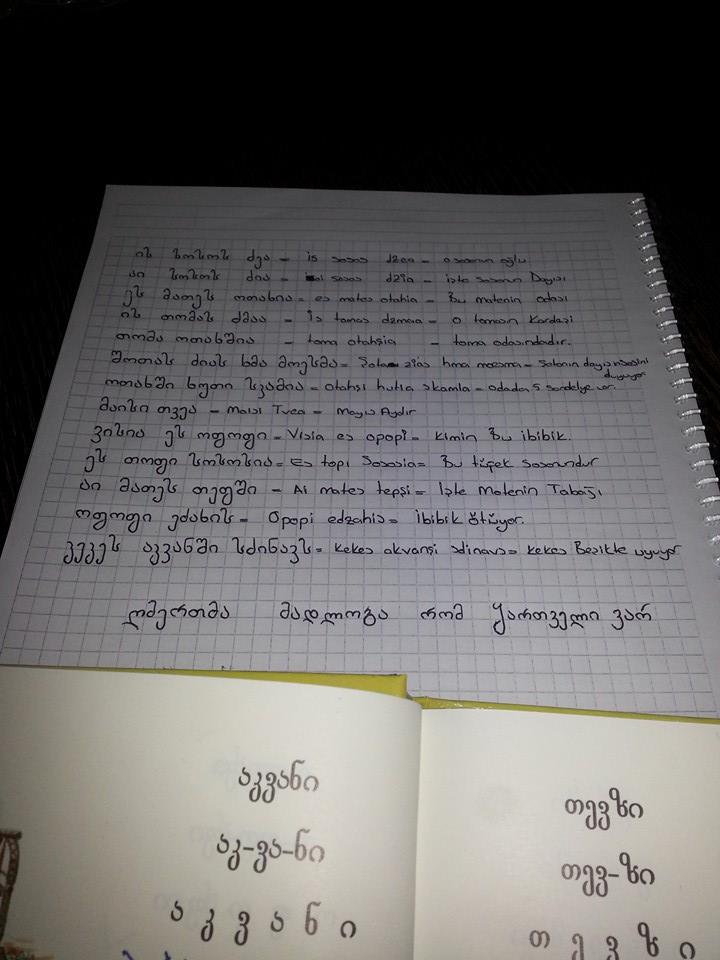 ის სოსოს ძვა - is sosos dzea - o sosonun oğlu
აი სოსოს ძია - ai sosos dzia - işte sosonun Dayısı
ეს მათეს ოთახია = es mates otahia - Bu matenin odası
ის თომას ძმაა - is tomas dzmaa - o tomasın Kardaşi
თომა ოთახშია - toma otahşia - toma odasındadır.
შოთას ძიას ხმა მოესმა = Şotas zias hma moesma = Şotanın dayısının sesini duyuyor
ოთახში ხუთი სკამია = otahşi hutia skamia - odada 5 sandelye var.
მაისი თვეა - Maisi Tvea - Mayıs Aydır
ვისია ეს ოფოფი = Visia es opopi = kimin Bu ibibik.
ეს თოფი სოსოსია = Es topi Sososia = Bu tüfek sosonundur
აი მათეს თეფში - Ai mates tepşi = İşte Matenin Tabağı
ოფოფი ეძახის = Opopi edzahis = ibibik ötüyor.
კეკეს აკვანში სძინავს = kekes akvanşi sdinavs = kekes Beşikte uyuyor
ღმერთმა მადლობა რომ ქართველი ვარ
აკვანი
აკ-ვა-ნი
ა კ ვ ა ნ ი
თევზი
თევ-ზი
თ ე ვ ზ ი